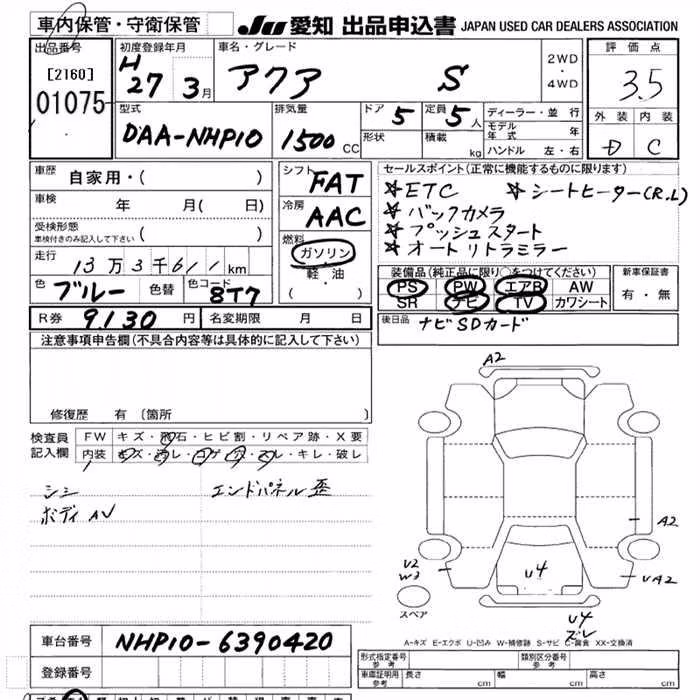 車内保管・守衛保管
JU 愛知 出品申込書 JAPAN USED CAR DEALERS ASSOCIATION
出品番号
[2160]
01075
初度登録年月
H 27 3月
車名・グレード
アクア S
2WD
・
4WD
評価点
3.5
外装 内装
D C
型式
DAA-NHP10
排気量
1500 CC
ドア 5
定員 5人
形状
積載 kg
ディーラー・並行
モデル年式 年
ハンドル 左・右
車歴 自家用・( )
車検 年 月( 日)
受検形態
車検付きのみ記入して下さい ( )
走行 13万3千611km
色 ブルー 色替 色コード 8T7
シフト FAT
冷房 AAC
燃料
ガソリン
軽・油
( )
セールスポイント(正常に機能するものに限ります)
☆ETC ☆シートヒーター(R.L)
☆バックカメラ
☆プッシュスタート
☆オートリトラミラー
装備品(純正品に限り○をつけてください)
PS PW エアB AW
SR ナビ TV カワシート
新車保証書
有・無
R券 9,130円 名変期限 月 日
後日品 ナビSDカード
注意事項申告欄(不具合内容等は具体的に記入して下さい)
修復歴 有(箇所
検査員記入欄
FW キズ・飛石・ヒビ割・リペア跡・X要
内装 キズ・汚レ・コゲ・穴・スレ・キレ・破レ
シミ エンドパネル歪
ボディAU
A2
A2
U2
W3
U4
UA2
U4
ズレ
スペア
A-キズ E-エクボ U-凹み W-補修跡 S-サビ C-腐食 XX-交換済
車台番号 NHP10-6390420
登録番号
形式指定番号 参考
類別区分番号 参考
車庫証明用 参考 長さ cm 幅 cm 高さ cm